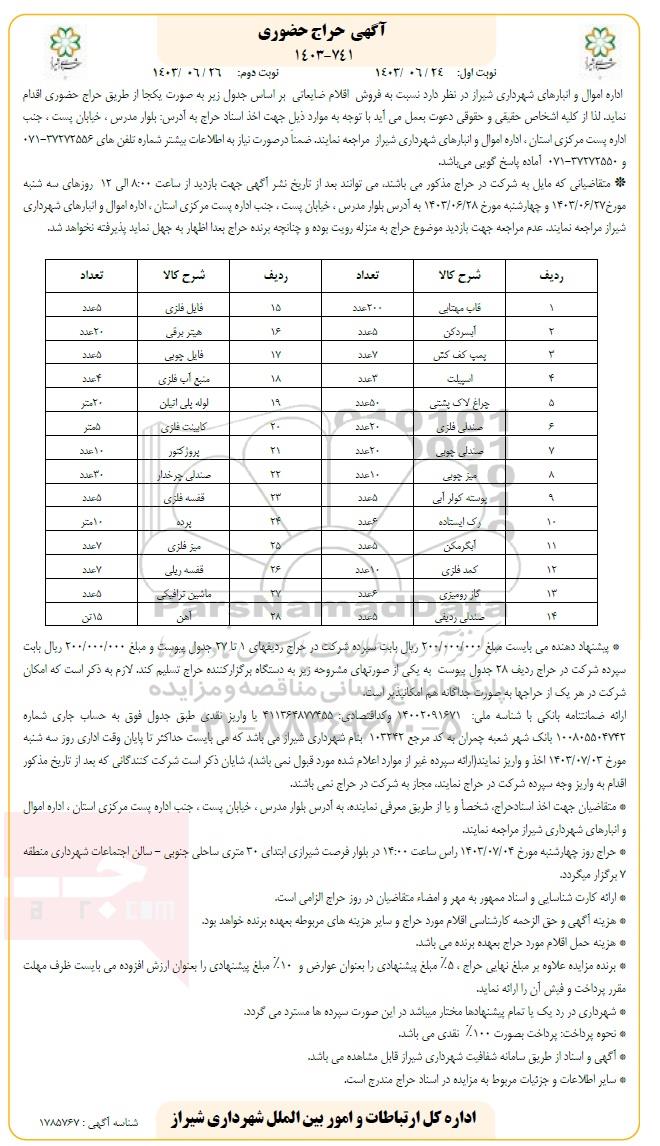 آگهی حراج حضوری
۱۴۰۳-۷۴۱
نوبت اول: ۲۴ /۰۶ /۱۴۰۳ نوبت دوم: ۲۶ /۰۶ /۱۴۰۳
اداره اموال و انبارهای شهرداری شیراز در نظر دارد نسبت به فروش اقلام ضایعاتی بر اساس جدول زیر به صورت یکجا از طریق حراج حضوری اقدام
نماید. لذا از کلیه اشخاص حقیقی و حقوقی دعوت بعمل می آید با توجه به موارد ذیل جهت اخذ اسناد حراج به آدرس: بلوار مدرس ، خیابان پست ، جنب
اداره پست مرکزی استان ، اداره اموال و انبارهای شهرداری شیراز مراجعه نمایند. ضمناً درصورت نیاز به اطلاعات بیشتر شماره تلفن های ۳۷۲۷۲۵۵۶-۰۷۱
و ۳۷۲۷۲۵۵۰-۰۷۱ آماده پاسخ گویی می‌باشد.
❊ متقاضیانی که مایل به شرکت در حراج مذکور می باشند، می توانند بعد از تاریخ نشر آگهی جهت بازدید از ساعت ۸:۰۰ الی ۱۲ روزهای سه شنبه
مورخ۱۴۰۳/۰۶/۲۷ و چهارشنبه مورخ ۱۴۰۳/۰۶/۲۸ به آدرس بلوار مدرس ، خیابان پست ، جنب اداره پست مرکزی استان ، اداره اموال و انبارهای شهرداری
شیراز مراجعه نمایند. عدم مراجعه جهت بازدید موضوع حراج به منزله رویت بوده و چنانچه برنده حراج بعدا اظهار به جهل نماید پذیرفته نخواهد شد.
ردیف شرح کالا تعداد ردیف شرح کالا تعداد
۱ قاب مهتابی ۲۰۰عدد ۱۵ فایل فلزی ۵عدد
۲ آبسردکن ۵عدد ۱۶ هیتر برقی ۲۰عدد
۳ پمپ کف کش ۷عدد ۱۷ فایل چوبی ۵عدد
۴ اسپیلت ۳عدد ۱۸ منبع آب فلزی ۴عدد
۵ چراغ لاک پشتی ۵۰عدد ۱۹ لوله پلی اتیلن ۲۰متر
۶ صندلی فلزی ۲۰عدد ۲۰ کابینت فلزی ۵متر
۷ صندلی چوبی ۲۰عدد ۲۱ پروژکتور ۱۰عدد
۸ میز چوبی ۱۰عدد ۲۲ صندلی چرخدار ۳۰عدد
۹ پوسته کولر آبی ۵عدد ۲۳ قفسه فلزی ۵عدد
۱۰ رک ایستاده ۶عدد ۲۴ پرده ۱۰متر
۱۱ آبگرمکن ۵عدد ۲۵ میز فلزی ۷عدد
۱۲ کمد فلزی ۱۰عدد ۲۶ قفسه ریلی ۷عدد
۱۳ گاز رومیزی ۶عدد ۲۷ ماشین ترافیکی ۵عدد
۱۴ صندلی ردیفی ۵عدد ۲۸ آهن ۱۵تن
ParsNamadData
پایگاه اطلاع رسانی مناقصه و مزایده
۰۲۱-۸۸۳۴۹۶۷۰-۵
* پیشنهاد دهنده می بایست مبلغ ۲۰۰/۰۰۰/۰۰۰ ریال بابت سپرده شرکت در حراج ردیفهای ۱ تا ۲۷ جدول پیوست و مبلغ ۲۰۰/۰۰۰/۰۰۰ ریال بابت
سپرده شرکت در حراج ردیف ۲۸ جدول پیوست به یکی از صورتهای مشروحه زیر به دستگاه برگزارکننده حراج تسلیم کند. لازم به ذکر است که امکان
شرکت در هر یک از حراجها به صورت جداگانه هم امکانپذیر است.
ارائه ضمانتنامه بانکی با شناسه ملی: ۱۴۰۰۲۰۹۱۶۷۱ وکداقتصادی: ۴۱۱۳۶۴۸۷۷۴۵۵ یا واریز نقدی طبق جدول فوق به حساب جاری شماره
۱۰۰۸۰۵۵۰۴۷۴۲ بانک شهر شعبه چمران به کد مرجع ۱۰۳۲۴۲ بنام شهرداری شیراز می باشد که می بایست حداکثر تا پایان وقت اداری روز سه شنبه
مورخ ۱۴۰۳/۰۷/۰۳ اخذ و واریز نمایند(ارائه سپرده غیر از موارد اعلام شده مورد قبول نمی باشد)، شایان ذکر است شرکت کنندگانی که بعد از تاریخ مذکور
اقدام به واریز وجه سپرده شرکت در حراج نمایند، مجاز به شرکت در حراج نمی باشند.
* متقاضیان جهت اخذ اسنادحراج، شخصاً و یا از طریق معرفی نماینده، به آدرس بلوار مدرس ، خیابان پست ، جنب اداره پست مرکزی استان ، اداره اموال
و انبارهای شهرداری شیراز مراجعه نمایند.
* حراج روز چهارشنبه مورخ ۱۴۰۳/۰۷/۰۴ راس ساعت ۱۴:۰۰ در بلوار فرصت شیرازی ابتدای ۳۰ متری ساحلی جنوبی – سالن اجتماعات شهرداری منطقه
۷ برگزار میگردد.
* ارائه کارت شناسایی و اسناد ممهور به مهر و امضاء متقاضیان در روز حراج الزامی است.
* هزینه آگهی و حق الزحمه کارشناسی اقلام مورد حراج و سایر هزینه های مربوطه بعهده برنده خواهد بود.
* هزینه حمل اقلام مورد حراج بعهده برنده می باشد.
* برنده مزایده علاوه بر مبلغ نهایی حراج ، ۵٪ مبلغ پیشنهادی را بعنوان عوارض و ۱۰٪ مبلغ پیشنهادی را بعنوان ارزش افزوده می بایست ظرف مهلت
مقرر پرداخت و فیش آن را ارائه نماید.
* شهرداری در رد یک یا تمام پیشنهادها مختار میباشد در این صورت سپرده ها مسترد می گردد.
* نحوه پرداخت: پرداخت بصورت ۱۰۰٪ نقدی می باشد.
* آگهی و اسناد از طریق سامانه شفافیت شهرداری شیراز قابل مشاهده می باشد.
* سایر اطلاعات و جزئیات مربوط به مزایده در اسناد حراج مندرج است.
اداره کل ارتباطات و امور بین الملل شهرداری شیراز
شناسه آگهی : ۱۷۸۵۷۶۷